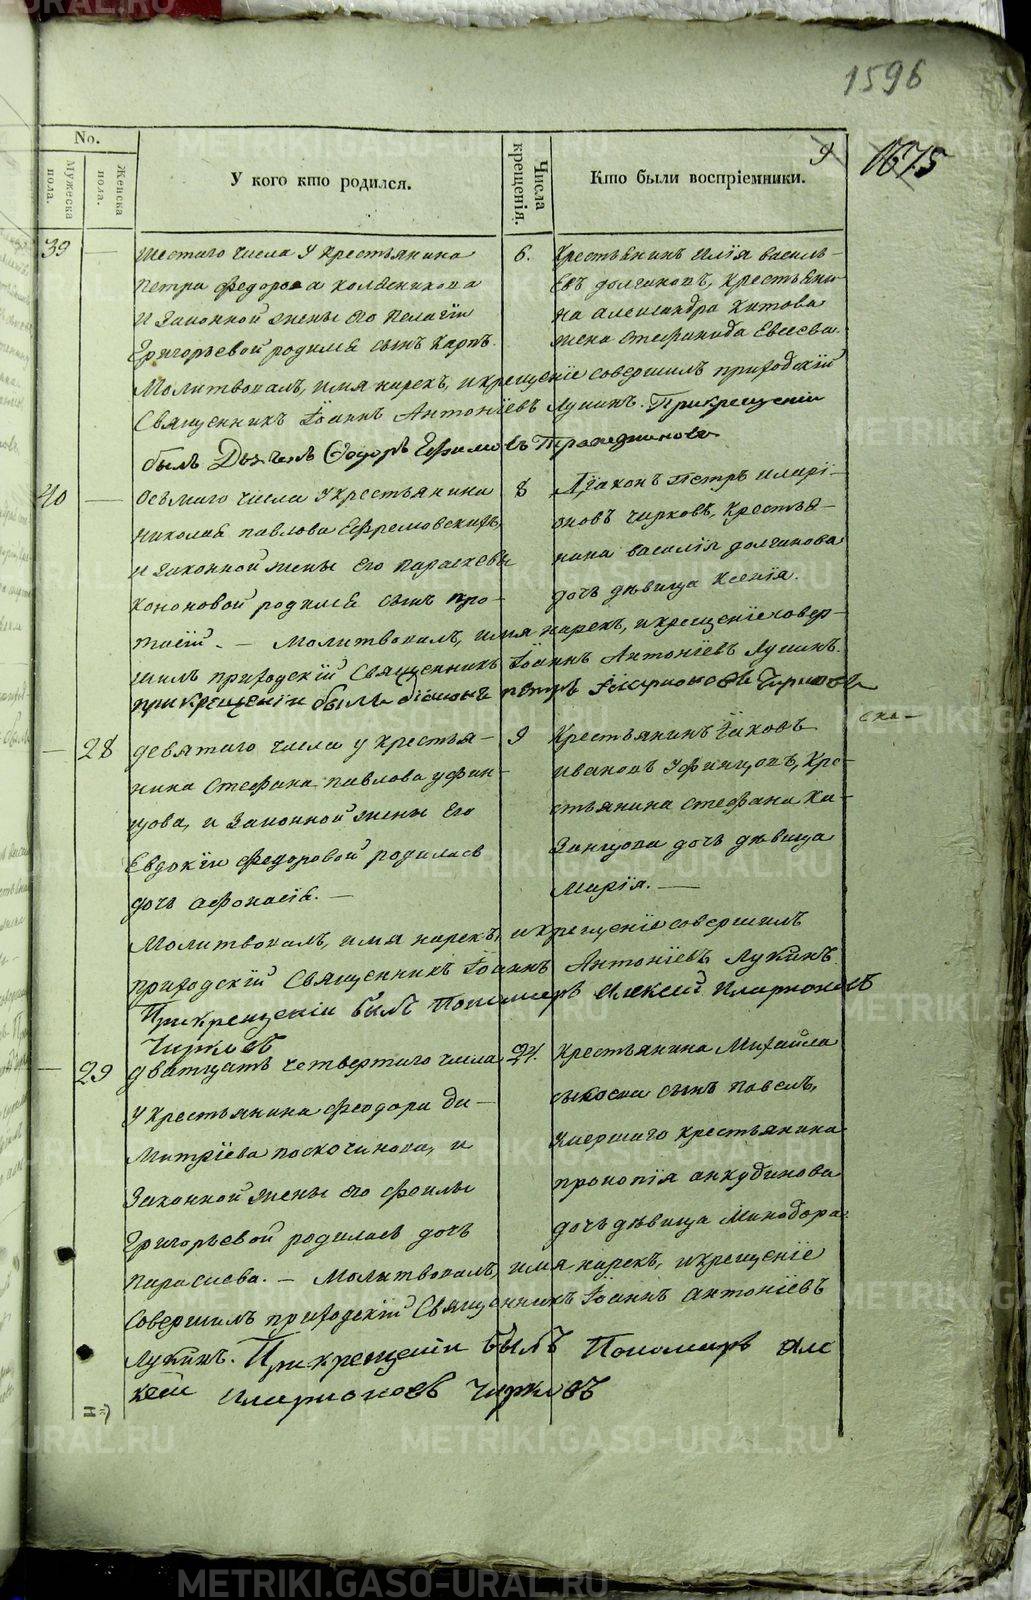 1596
No.
Мужеска пола.
Женска пола.
У кого кто родился.
Числа крещенія.
Кто были воспріемники.
9
1675
39
Шестаго числа у крестьянина
Петра Федорова Колѣсникова
и законной жены его Пелагіи
Григорьевой родился сынъ Карпъ.
6.
Крестьянинъ Илія Василь-
евъ Долгиновъ, крестьяни-
на Александра Китова
жена Стефанида Евсеева.
Молитвовалъ, имя нарекъ, и крещеніе совершилъ приходскій
Священникъ Іоаннъ Антоніевъ Лукинъ. При крещеніи
былъ Дьячекъ Ѳедоръ Ефимовъ
40
Осьмаго числа у крестьянина
Николая Павлова Ефремовскихъ,
и законной жены его Параскевы
Кононовой родился сынъ Про-
тасій. —
8
Діаконъ Петръ Иларі-
оновъ Чирковъ, крестья-
нина Василія Долгинова
дочь дѣвица Ксенія.
Молитвовалъ, имя нарекъ, и крещеніе совер-
шилъ приходскій Священникъ Іоаннъ Антоніевъ Лукинъ.
при крещеніи былъ діаконъ Петръ Иларионовъ Чирковъ
28
девятаго числа у крестья-
нина Стефана Павлова Уфин-
цова, и законной жены его
Евдокіи Федоровой родилась
дочь Афонасія. —
9
Крестьянинъ Іаковъ
Ивановъ Уфинцовъ, кре-
стьянина Стефана Ка-
занцова дочь дѣвица
Марія. —
Молитвовалъ, имя нарекъ, и крещеніе совершилъ
приходскій Священникъ Іоаннъ Антоніевъ Лукинъ.
При крещеніи былъ Пономарь Алексей Иларионовъ
Чирковъ
29
Дватцать четвертаго числа
у крестьянина Феодора Ди-
митріева Поскочинова, и
законной жены его Феклы
Григорьевой родилась дочь
Параскева. —
24.
Крестьянина Михайла
сынъ Павелъ,
умершаго крестьянина
Прокопія Анкудинова
дочь дѣвица Минодора.
Молитвовалъ, имя нарекъ, и крещеніе
совершилъ приходскій Священникъ Іоаннъ Антоніевъ
Лукинъ. При крещеніи былъ Пономарь Але
ксей Иларионовъ Чирковъ
METRIKI.GASO-URAL.RU